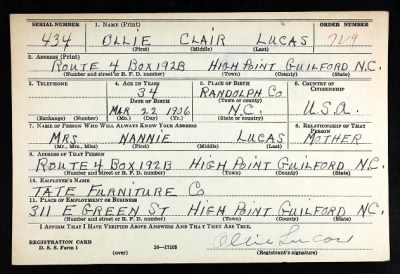 SERIAL NUMBER 1. NAME (Print) ORDER NUMBER
434 OLLIE CLAIR LUCAS
(First) (Middle) (Last)
2. ADDRESS (Print)
ROUTE 4 BOX 192B HIGH POINT GUILFORD N.C.
(Number and street or R. F. D. number) (Town) (County) (State)
3. TELEPHONE 4. AGE IN YEARS 5. PLACE OF BIRTH 6. COUNTRY OF CITIZENSHIP
34 RANDOLPH CO
DATE OF BIRTH (Town or county)
MAR 22 1906 N.C. U.S.A.
(Exchange) (Number) (Mo.) (Day) (Yr.) (State or country)
7. NAME OF PERSON WHO WILL ALWAYS KNOW YOUR ADDRESS 8. RELATIONSHIP OF THAT PERSON
MRS NANNIE LUCAS MOTHER
(Mr., Mrs., Miss) (First) (Middle) (Last)
9. ADDRESS OF THAT PERSON
ROUTE 4 BOX 192B HIGH POINT GUILFORD N.C.
(Number and street or R. F. D. number) (Town) (County) (State)
10. EMPLOYER'S NAME
TATE FURNITURE CO
11. PLACE OF EMPLOYMENT OR BUSINESS
311 E GREEN ST HIGH POINT GUILFORD N.C.
(Number and street or R. F. D. number) (Town) (County) (State)
I AFFIRM THAT I HAVE VERIFIED ABOVE ANSWERS AND THAT THEY ARE TRUE.
Ollie Lucas
REGISTRATION CARD
D. S. S. Form 1 (over) 16—17105 (Registrant's signature)